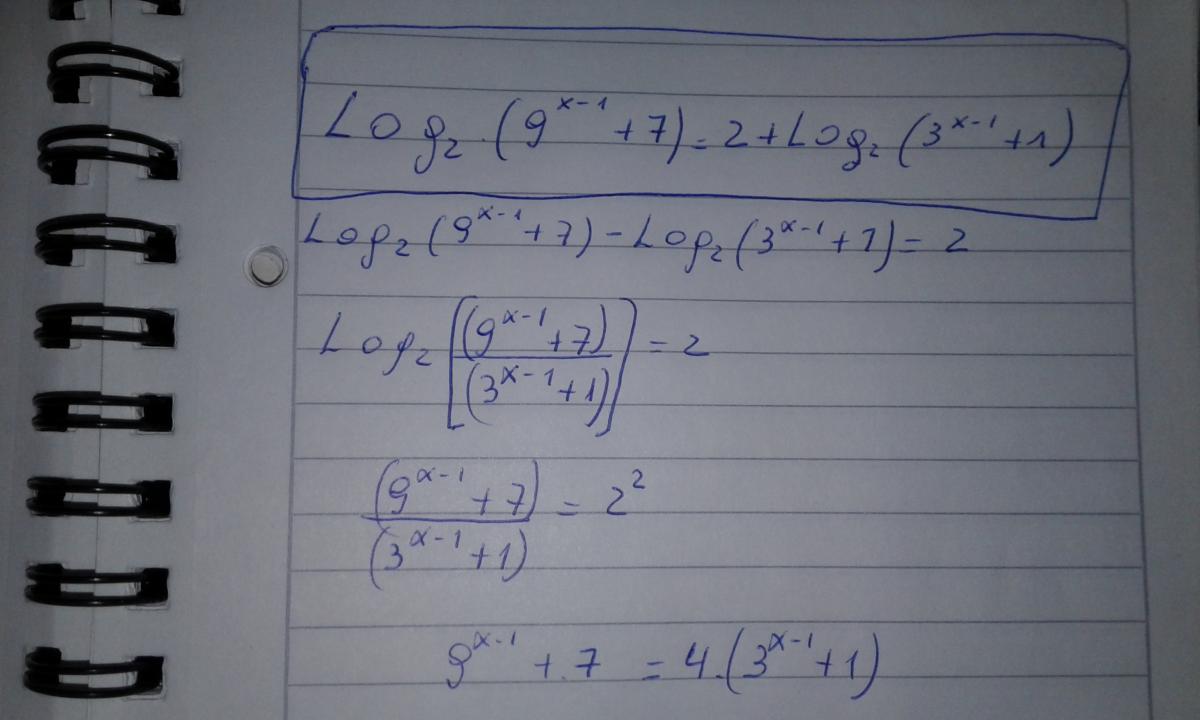 Log₂.(9^(x-1) + 7) = 2 + Log₂ (3^(x-1) + 1)
Log₂ (9^(x-1) + 7) - Log₂ (3^(x-1) + 1) = 2
Log₂ [(9^(x-1) + 7) / (3^(x-1) + 1)] = 2
(9^(x-1) + 7) / (3^(x-1) + 1) = 2²
9^(x-1) + 7 = 4.(3^(x-1) + 1)